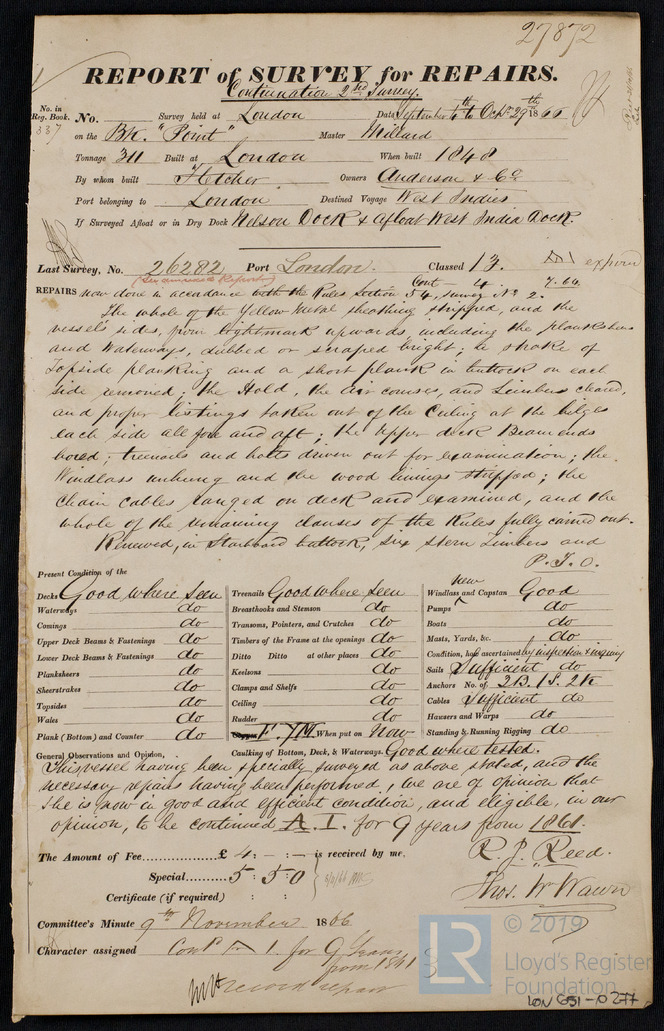 27872
REPORT of SURVEY for REPAIRS.
Continuation 2nd Survey.
No. in Reg. Book. No. Survey held at London Date, September 4th to Octr. 29th 1866
337 on the Bk. "Point" Master Millard
Tonnage 311 Built at London When built 1848
By whom built Fletcher Owners Anderson & Co
Port belonging to London Destined Voyage West Indies
If Surveyed Afloat or in Dry Dock Nelson Dock & afloat West India Dock.
Last Survey, No. 26282 Port London. Classed 13. A1 expired
Cont - 4 7.64
REPAIRS now done in accordance with the Rules Section 54, Survey No. 2.
The whole of the Yellow Metal sheathing stripped, and the
vessel's sides, from lightmark upwards, including the plansheers
and Waterways, dubbed or scraped bright; a strake of
Topside planking and a short plank in buttock on each
side removed; the Hold, the air courses, and Limbers cleared,
and proper listings taken out of the Ceiling at the bilges
each side all fore and aft; the upper deck Beamends
bored; treenails and bolts driven out for examination; the
Windlass unhung and the wood linings stripped; the
Chain cables ranged on deck and examined, and the
whole of the remaining clauses of the Rules fully carried out.
Renewed, in Starboard buttock, six stern Timbers and
P.T.O.
Present Condition of the
Decks Good where seen Treenails Good where seen New Windlass and Capstan Good
Waterways do Breasthooks and Stemson do Pumps do
Comings do Transoms, Pointers, and Crutches do Boats do
Upper Deck Beams & Fastenings do Timbers of the Frame at the openings do Masts, Yards, &c. do
Lower Deck Beams & Fastenings do Ditto Ditto at other places do Condition, how ascertained by inspection & inquiry
Planksheers do Keelsons do Sails Sufficient do
Sheerstrakes do Clamps and Shelfs do Anchors No. of 3B. 1S. 2K
Topsides do Ceiling do Cables Sufficient do
Wales do Rudder do Hausers and Warps do
Plank (Bottom) and Counter do F. YM. When put on Now Standing & Running Rigging do
General Observations and Opinion, Caulking of Bottom, Deck, & Waterways. Good where tested.
This vessel having been specially surveyed as above stated, and the
necessary repairs having been performed, we are of opinion that
she is now in good and efficient condition, and eligible, in our
opinion, to be continued A. 1. for 9 years from 1861.
The Amount of Fee £ 4 : - : - is received by me,
R. J. Reed.
Special 5 : 5 : 0
Thos. W. Wawn
Certificate (if required) : :
Committee's Minute 9th November 1866
Character assigned Contd A 1. for 9 Years
from 1861
record repair
© 2019
LR
Lloyd's Register
Foundation
LON 651-0277